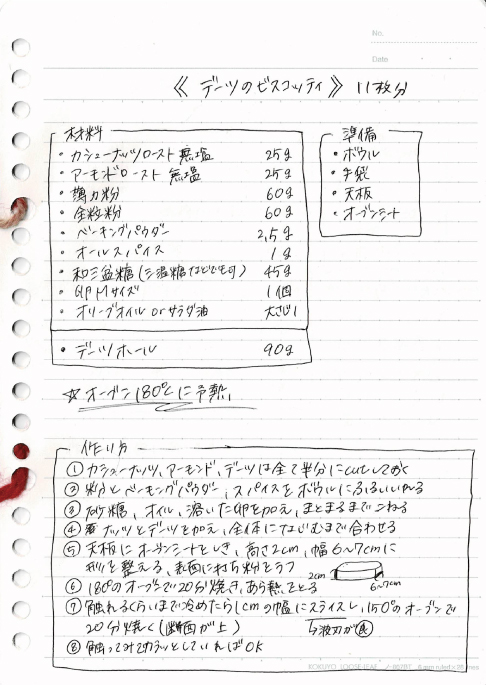 No.
Date
《 デーツのビスコッティ 》 11枚分
材料
・カシューナッツロースト 無塩 25g
・アーモンドロースト 無塩 25g
・薄力粉 60g
・全粒粉 60g
・ベーキングパウダー 2,5g
・オールスパイス 1g
・和三盆糖(三温糖などでも可) 45g
・卵Mサイズ 1個
・オリーブオイル or サラダ油 大さじ1
・デーツホール 90g
準備
・ボウル
・手袋
・天板
・オーブンシート
☆オーブン180℃に予熱
作り方
①カシューナッツ、アーモンド、デーツは全て半分にcutしておく
②粉とベーキングパウダー、スパイスをボウルにふるいいれる
③砂糖、オイル、溶いた卵を加え、まとまるまでこねる
④ナッツとデーツを加え、全体になじむまで合わせる
⑤天板にオーブンシートをしき、高さ2cm、幅6~7cmに
形を整える、表面に打ち粉をうつ
2cm
6~7cm
⑥180°のオーブンで20分焼き、あら熱をとる
⑦触れるくらいまで冷めたら1cmの幅にスライスし、150°のオーブンで
20分焼く(断面が上)
↳波刃が良
⑧触ってみてカラッとしていればOK
KOKUYO LOOSE-LEAF